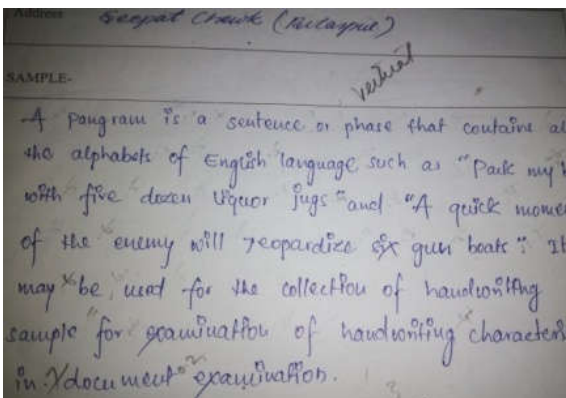 Address Seepat Chowk (Bilaspur)
vertical
SAMPLE-
A pangram is a sentence or phase that contains al
the alphabets of English language such as "Pack my
with five dozen liquor jugs" and "A quick mome
of the enemy will jeopardize six gun boats". It
may be, used for the collection of handwriting
sample for examination of handwriting character
in document examination.